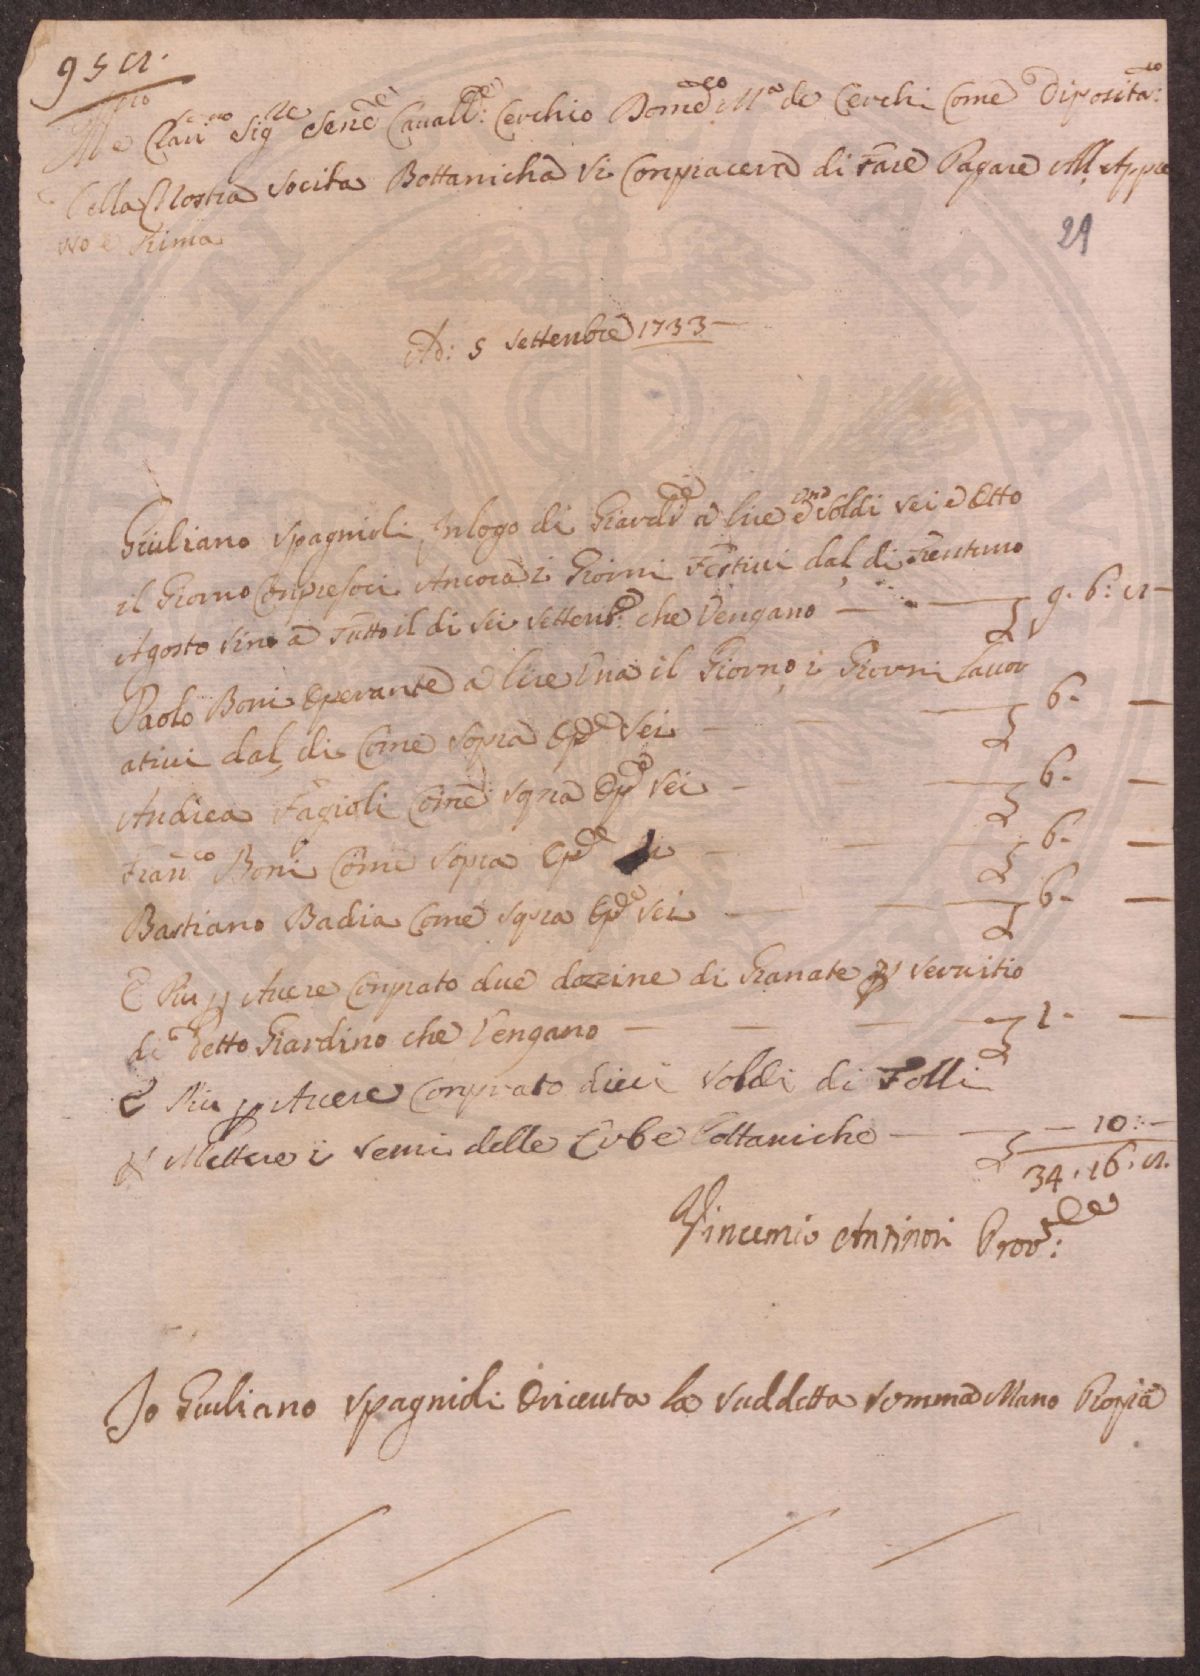 95 n.
Ill.mo e Clariss.mo Sig.re Sen.e Cavall.e: Cerchio Dom.co M.a de Cerchi Come Diposita.io:
Della Nostra Socita Bottanicha Si Conpiacera di Fare Pagare All Appie
vo e Prima
29
Ad: 5 Settenbre 1733 —
Giuliano Spagnioli Inlogo di Giard.e a lire una e Soldi Sei e Otto
il Giorno Conpresoci Ancora i Giorni Festiui dal di Trentuno
Agosto Sino a Tutto il di Sei Settenb.e: che Vengano — — £ 9. 6: 8 —
Paolo Boni Operante a lire Una il Giorno i Giorni Lauor
atiui dal di Come Sopra Op.e Sei — — £ 6. —
Andrea Fagioli Come Sopra Op.e Sei — — £ 6. —
Fran.co Boni Come Sopra Op.e — — £ 6. —
Bastiano Badia Come Sopra Op.e Sei — — £ 6. —
E Piu p Auere Conprato due dozzine di Granate p Seruitio
di Detto Giardino che Vengano — — — £ 1. —
E Piu p Auere Conprato dieci Soldi di Folli
p Mettere i Semi delle Erbe Bottaniche — — £ — 10: —
34. 16. 8.
Vincenzio Antinori Prov.re:
Io Giuliano Spagnioli O riceuta la Suddetta Somma Mano Propia